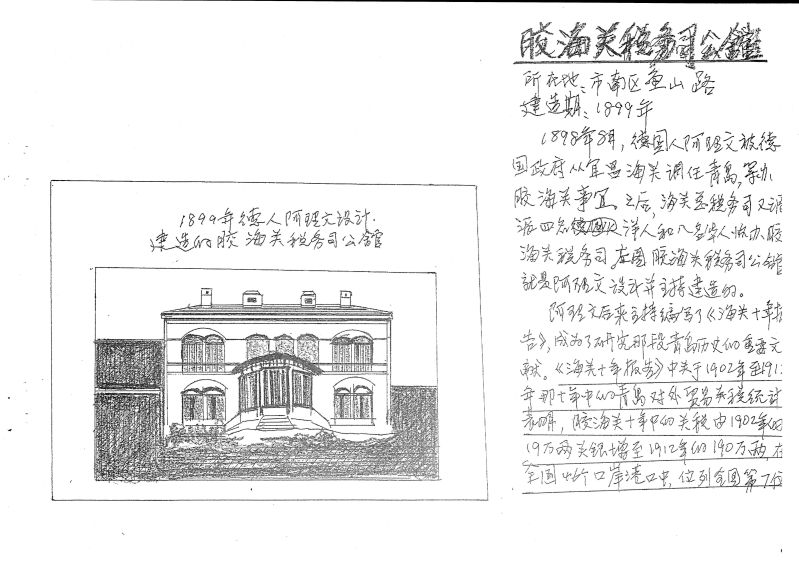 1899年德人阿理文设计
建造的胶海关税务司公馆
胶海关税务司公馆
所在地：市南区鱼山路
建造期：1899年
1898年8月，德国人阿理文被德
国政府从宜昌海关调任青岛，筹办
胶海关事宜。之后，海关总税务司又
派四名洋人和八名华人协办胶
海关税务司 左图胶海关税务司公馆
就是阿理文设计并主持建造的。
阿理文后来主持编写了《海关十年报
告》，成为了研究那段青岛历史的重要文
献。《海关十年报告》中关于1902年至191
年那十年中的青岛对外贸易和税统计
表明，胶海关十年中的关税由1902年的
19万两关银增至1912年的190万两，在
全国 个口岸港口中，位列全国第7位